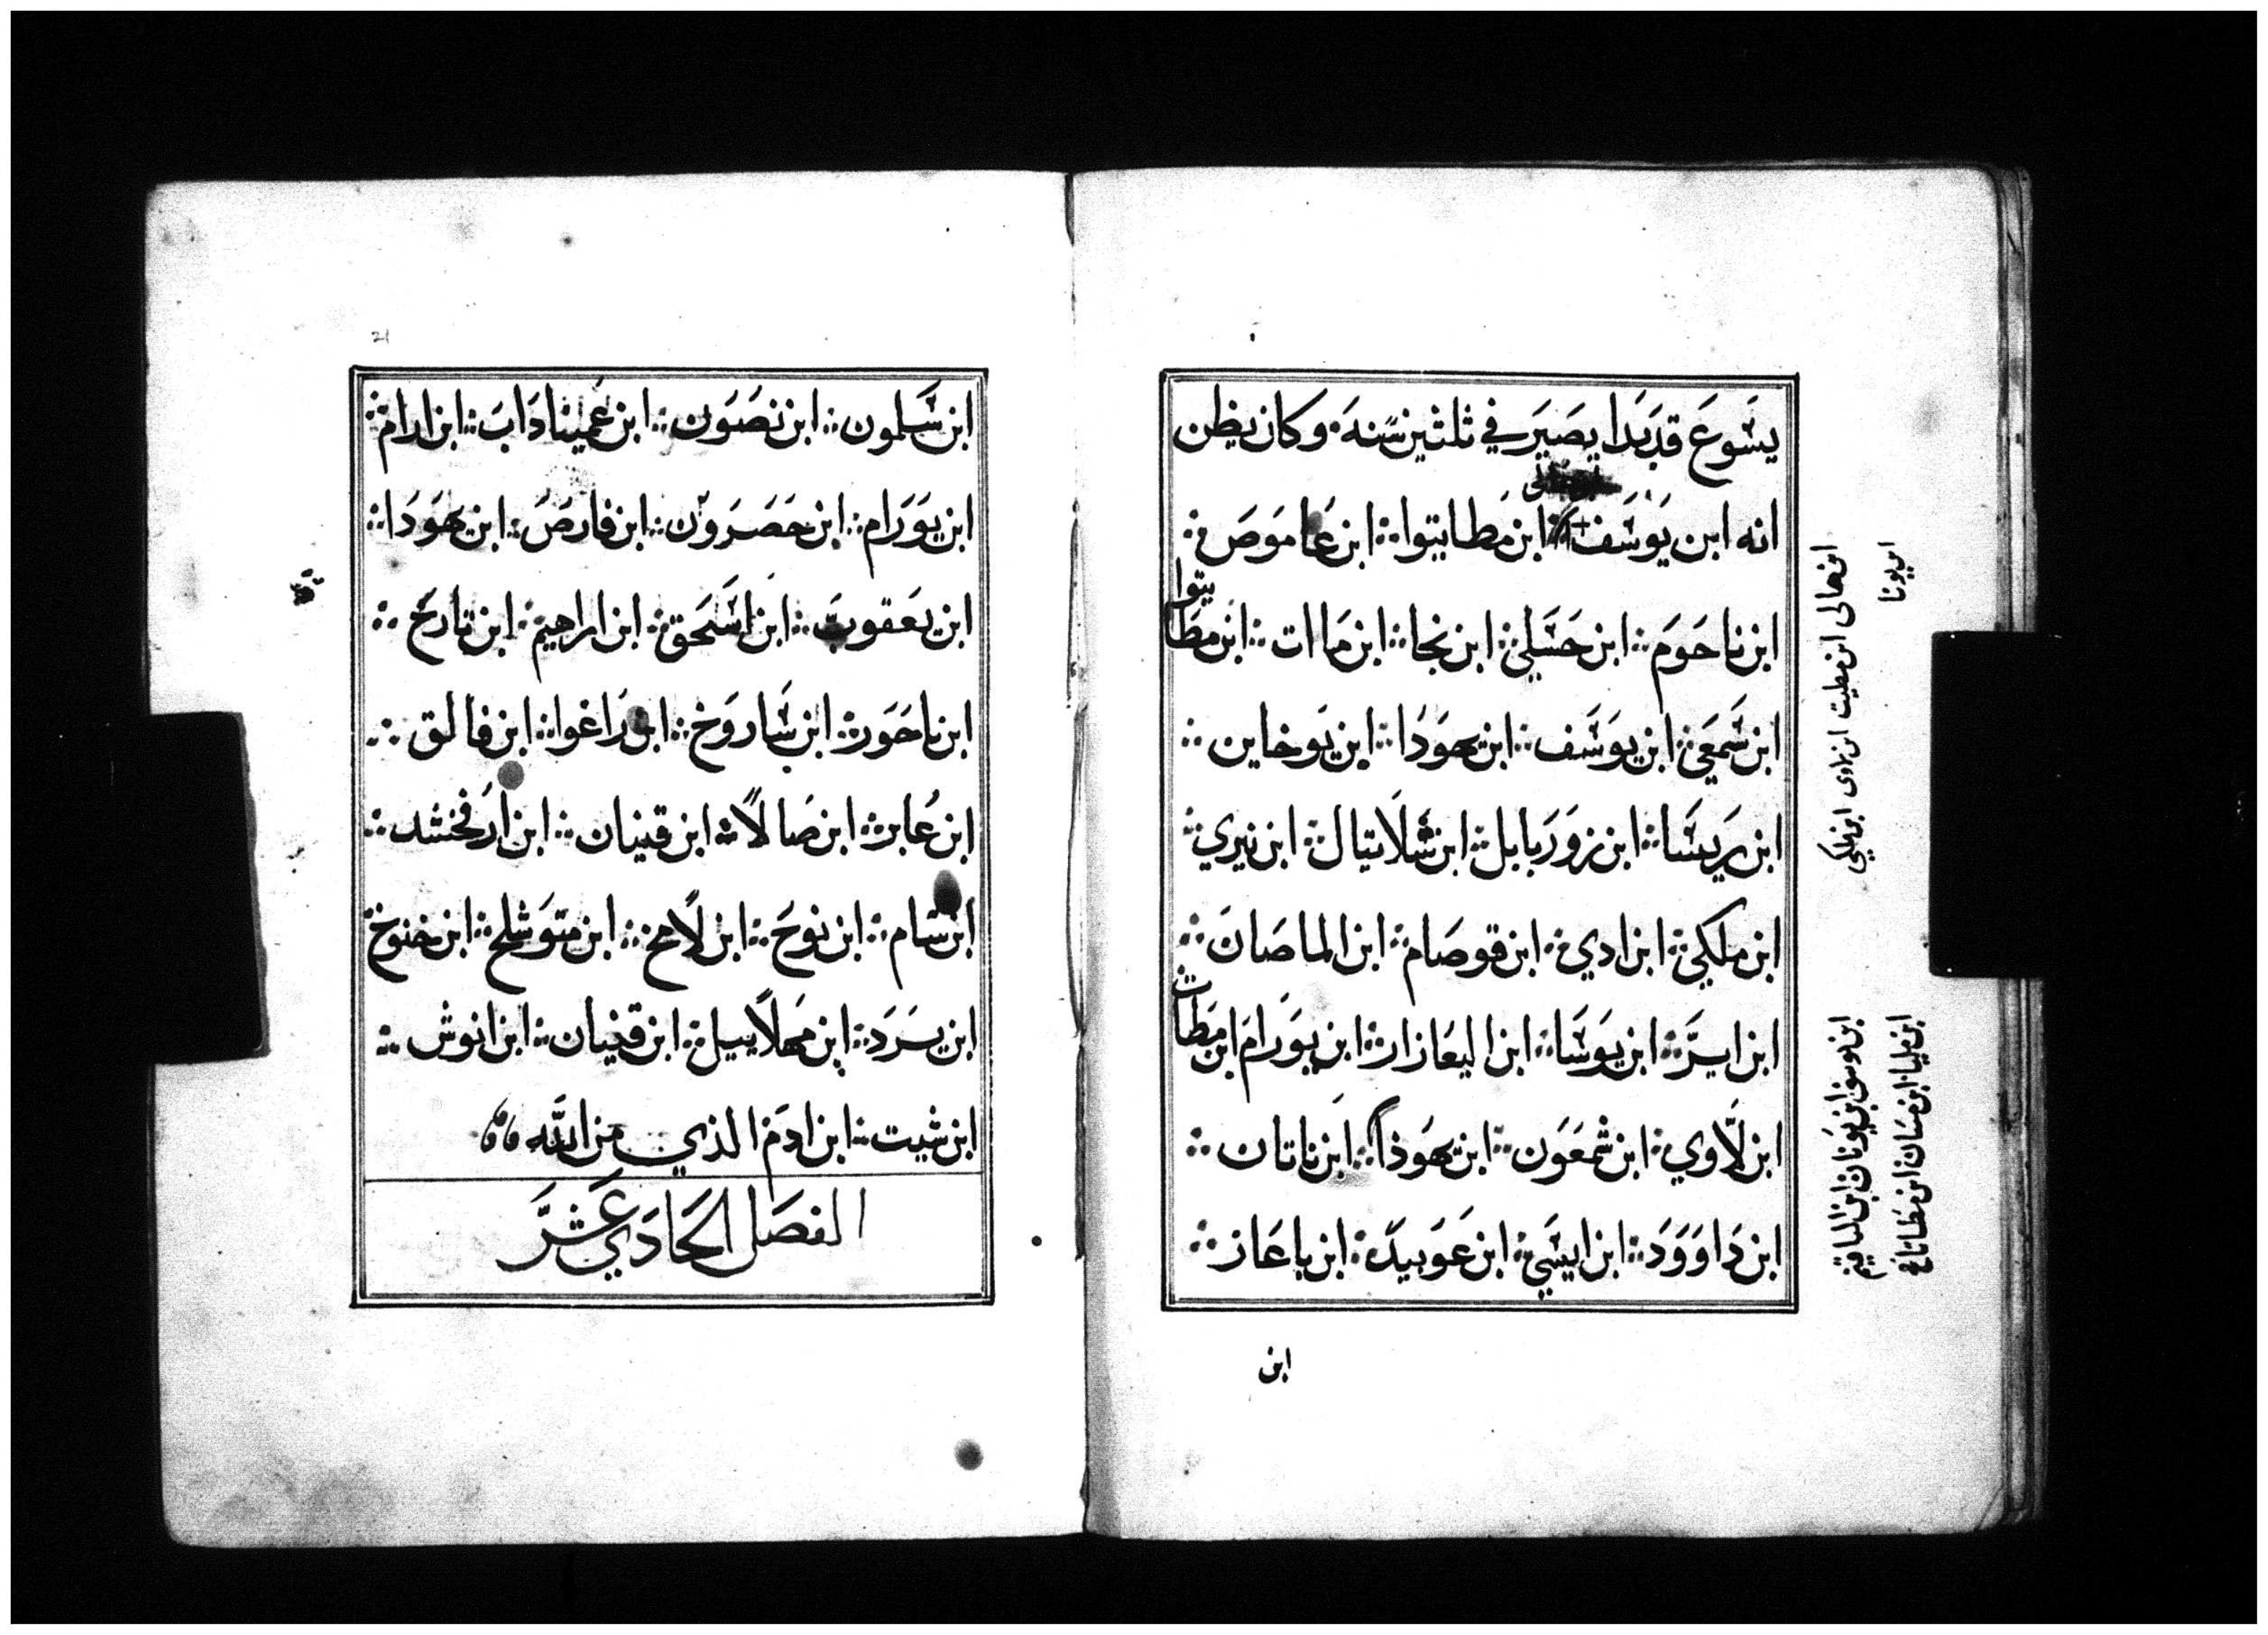 يَشَوعَ قد بَدا يصَيَر في ثلثين سَنهَ ٠ وكان يظن
انه ابن يَوسَف ؞ ابن مَطاتيوا ؞ ابن عَاموَصَ ؞
ابن ناحَومَ ؞ ابن حَسَلي ؞ ابن نجا ؞ ابن مَاات ؞ ابن مطَاتيوا
ابن شَمعَي ؞ ابن يوَسَف ؞ ابن يهوَدَا ؞ ابن يَوخاين ؞
ابن يرَيسَا ؞ ابن زوَرَبابل ؞ ابن شَلَاتيال ؞ ابن نيري ؞
ابن ملكي ؞ ابن ادي ؞ ابن قوصَام ؞ ابن الماصَانَ ؞
ابن ايرَّ ؞ ابن يوَسَا ؞ ابن اليعَازار ؞ ابن يوَرَامَ ابن مَطَات ؞
ابن لَاوي ؞ ابن شمعَون ؞ ابن يهَوذا ؞ ابن ناتان ؞
ابن دَاوَوَد ؞ ابن ايشَي ؞ ابن عَوَبيدَ ؞ ابن باعَاز ؞
ابن
ابن حالى ابن مطيت ابن لاوى ابن ملكي
ابن يونا
ابن يوسف ابن يَونان ابن الياقيم
ابن مليا ابن مَنيان ابن مَطاتا
21
ابن سَلمون ؞ ابن نصَوَن ؞ ابن عَميناداَبَ ؞ ابن ارام ؞
ابن يوَرَام ؞ ابن حَصَرَوَن ؞ ابن فارصَ ؞ ابن يهوَدَا ؞
ابن يعَقوبَ ؞ ابن اسَحَق ؞ ابن ابراهيم ؞ ابن تارَح ؞
ابن ناحَور ؞ ابن شَاروَخ ؞ ابن رَاغوا ؞ ابن فالق ؞
ابن عُابر ؞ ابن صَالاً ؞ ابن قينان ؞ ابن ارَفخشد ؞
ابن سَام ؞ ابن نوحَ ؞ ابن لاَمخ ؞ ابن متوَشلح ؞ ابن خنوخ ؞
ابن يسَرَد ؞ ابن مَهلاَييل ؞ ابن قينان ؞ ابن انوش ؞
ابن شيت ؞ ابن ادمَ الذي من اللَّه
الفصَل الحَادَي عَشرَ